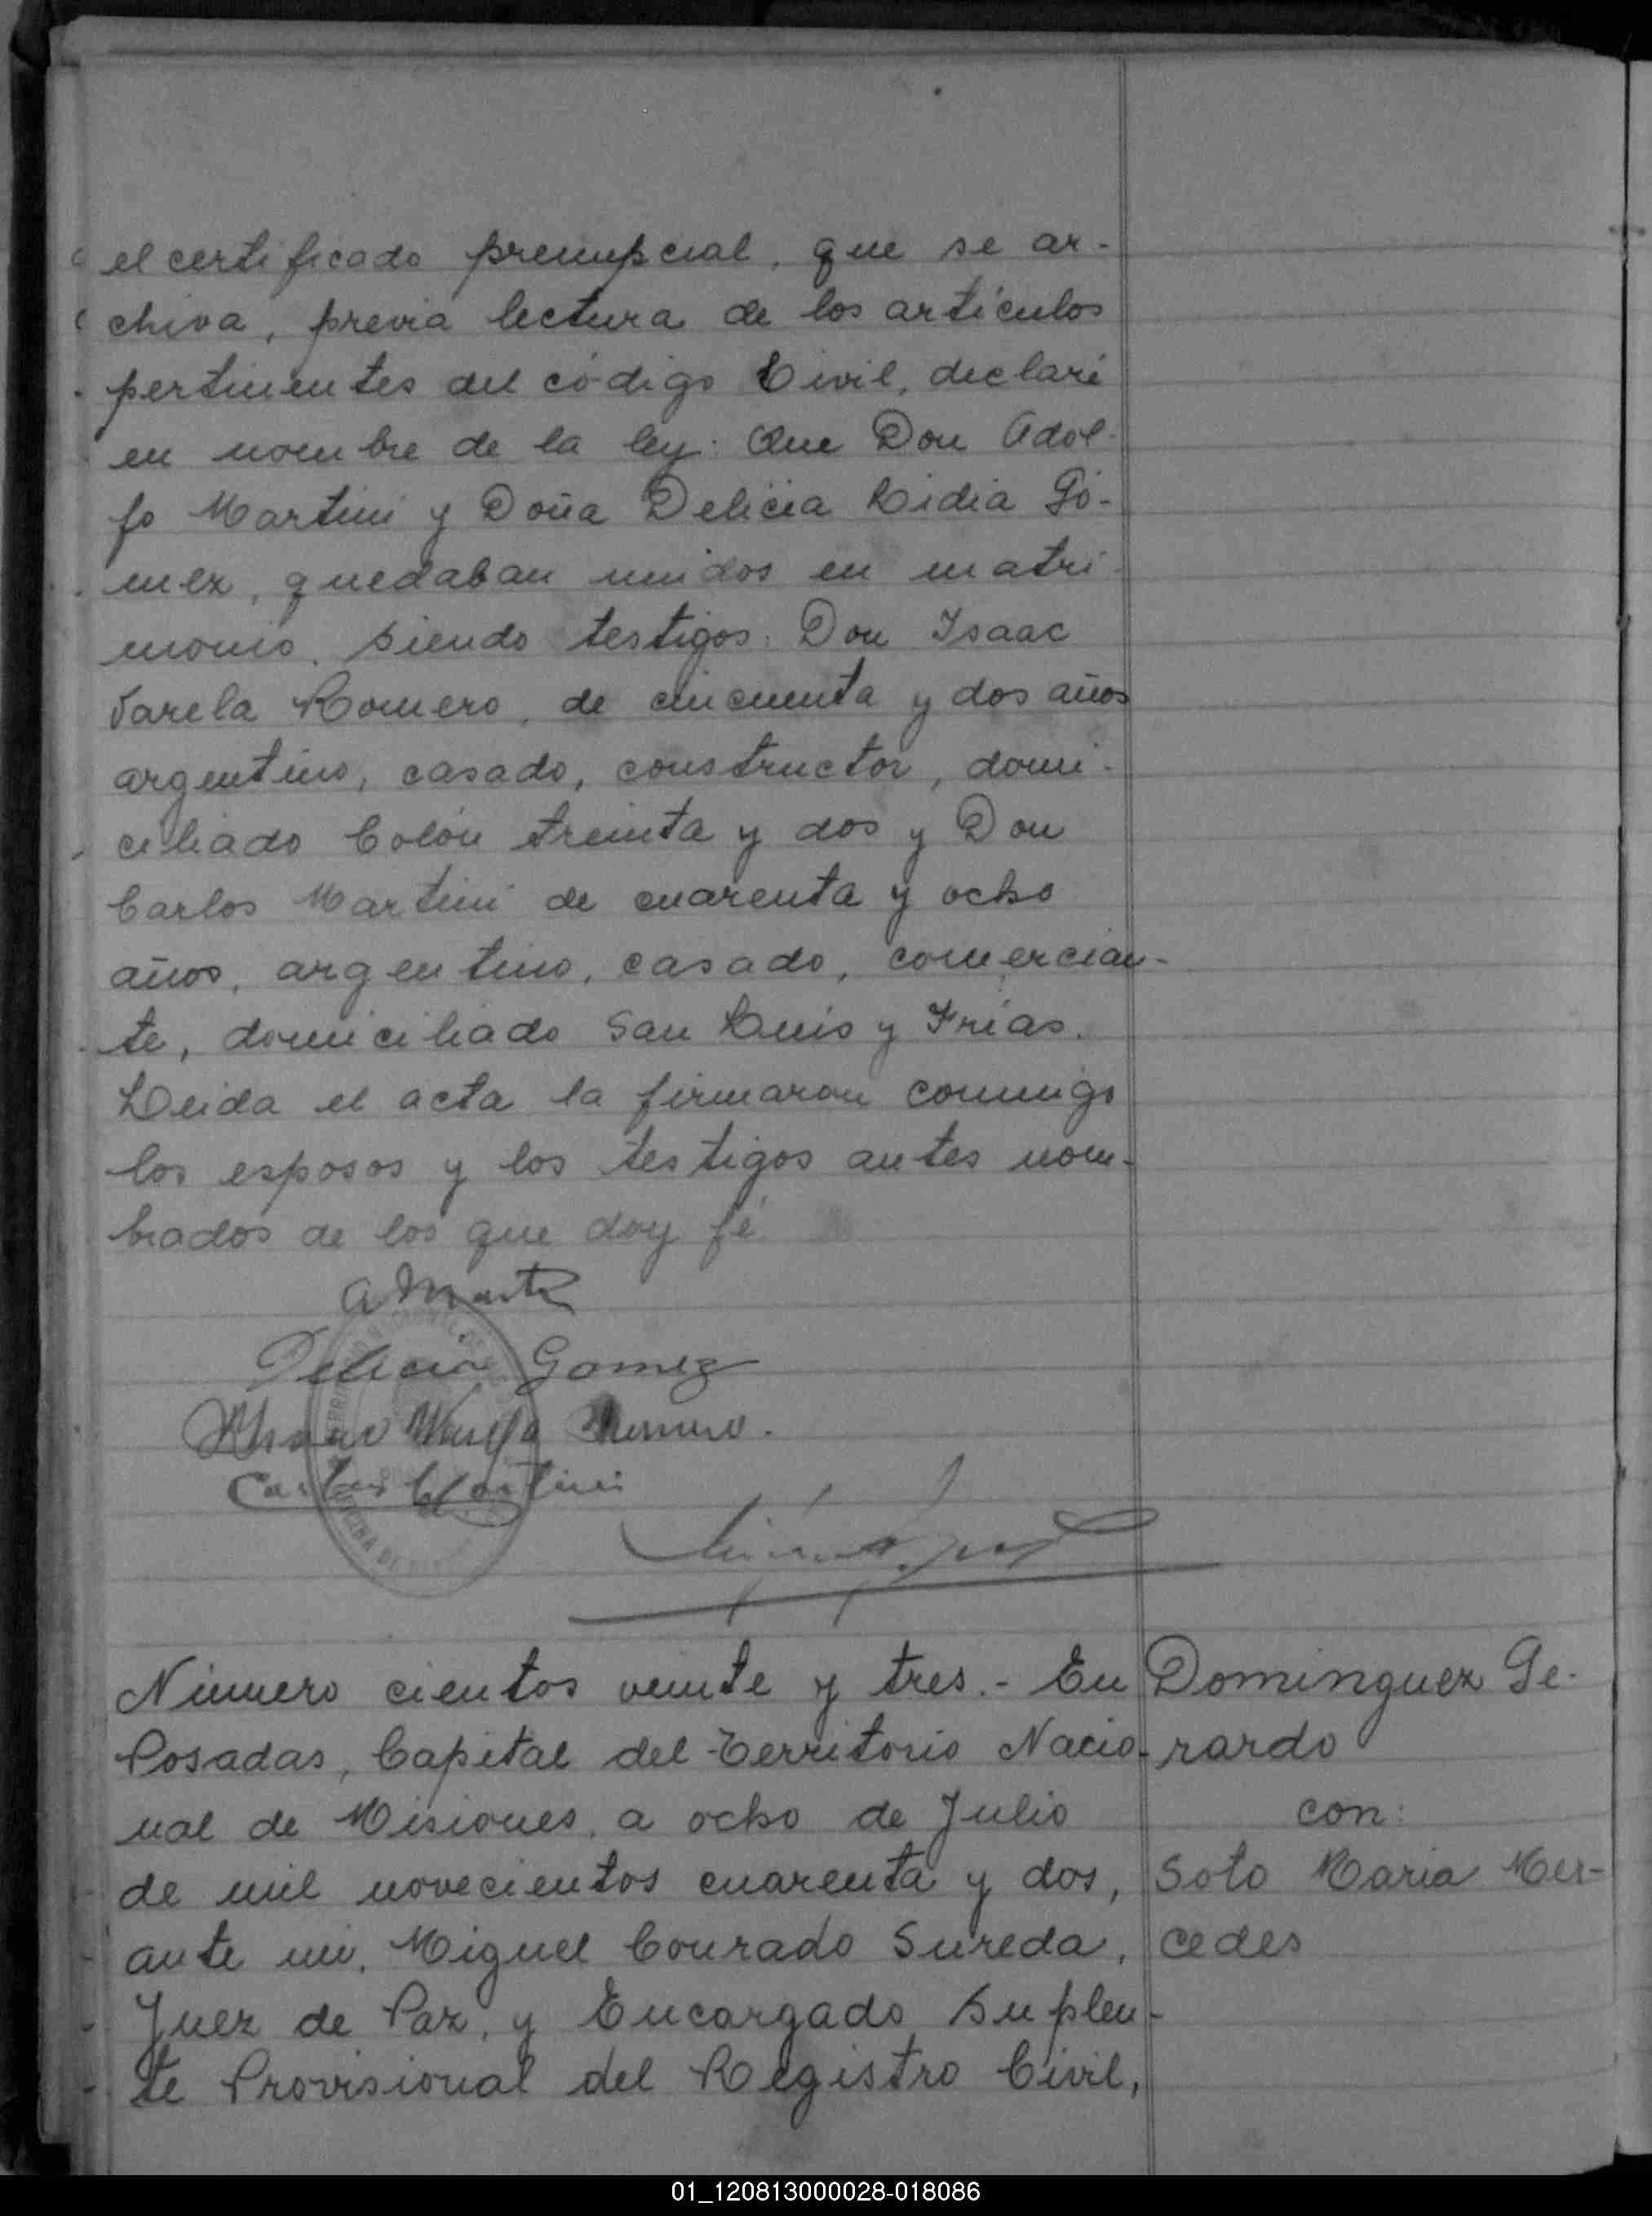 el certificado prenupcial, que se ar-
chiva, previa lectura de los artículos
pertinentes del código Civil, declaré
en nombre de la ley: Que Don Adol-
fo Martini y Doña Delicia Lidia Gó-
mez, quedaban unidos en matri-
monio. Siendo testigos: Don Isaac
Varela Romero, de cincuenta y dos años
argentino, casado, constructor, domi-
ciliado Colón treinta y dos y Don
Carlos Martini de cuarenta y ocho
años, argentino, casado, comercian-
te, domiciliado San Luis y Frías.
Leida el acta la firmaron conmigo
los esposos y los testigos antes nom-
brados de los que doy fé
Delicia Gomez
Carlos Martini
Número cientos veinte y tres.- En
Posadas, Capital del Territorio Nacio-
nal de Misiones, a ocho de Julio
de mil novecientos cuarenta y dos,
ante mi, Miguel Conrado Sureda,
Juez de Paz, y Encargado Suplen-
te Provisional del Registro Civil,
Dominguez Ge-
rardo
con:
Soto Maria Mer-
cedes
01_120813000028-018086